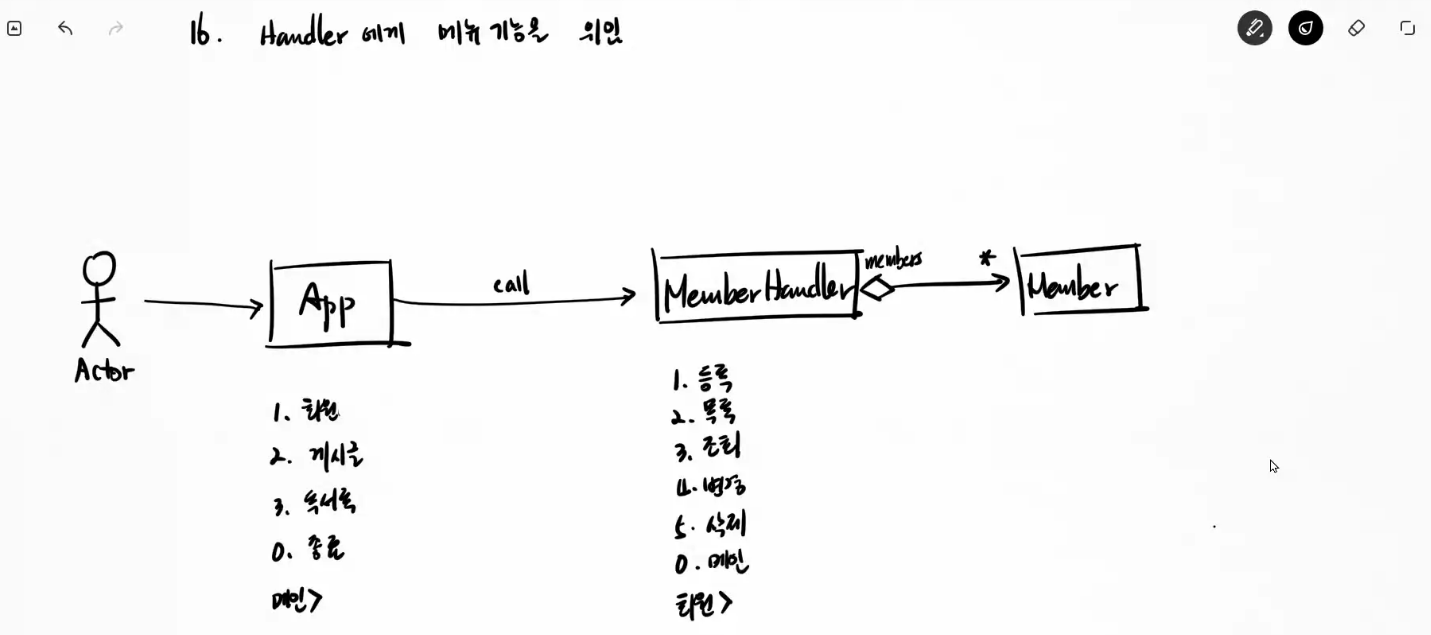 16. Handler 에게 메뉴 기능을 위임
call
members
*
App
MemberHandler
Member
Actor
1. 회원
2. 게시글
3. 독서록
0. 종료
메인>
1. 등록
2. 목록
3. 조회
4. 변경
5. 삭제
0. 메인
회원>